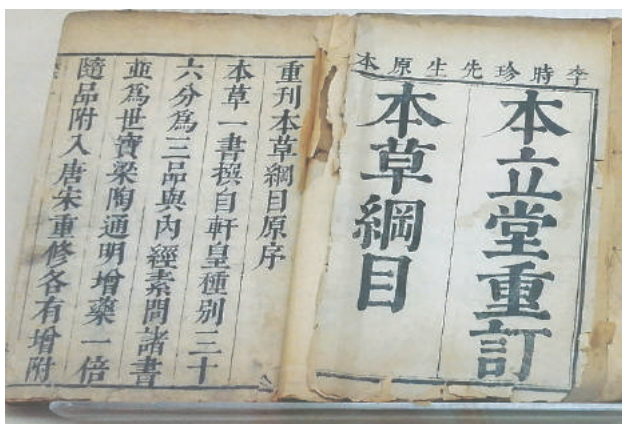 李時珍先生原本
本立堂重訂
本草綱目
重刊本草綱目原序
本草一書撰自軒皇種別三十
六分為三品與內經素問諸書
並為世寶梁陶通明增藥一倍
隨品附入唐宋重修各有增附